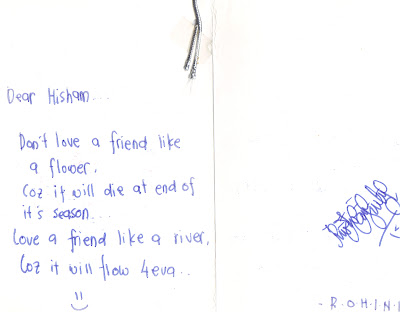 Dear Hisham...
Don't love a friend like
a flower,
Coz it will die at end of
it's season...
Love a friend like a river,
Coz it will flow 4eva..
- R.O.H.I.N.I